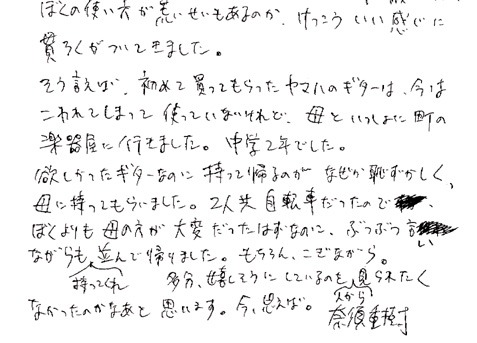 ぼくの使い方が荒いせいもあるのか、けっこういい感じに
貫ろくがついてきました。
そう言えば、初めて買ってもらったヤマハのギターは、今は
こわれてしまって使っていないけれど、母といっしょに町の
楽器屋に行きました。中学2年でした。
欲しかったギターなのに持って帰るのがなぜか恥ずかしく、
母に持ってもらいました。2人共自転車だったので
ぼくよりも母の方が大変だったはずなのに、ぶつぶつ言い
ながらも、並んで帰りました。もちろん、こぎながら。
持ってくれ
多分、嬉しそうにしているのを見られたく
人から
なかったのかなあと思います。今、思えば。
奈須重樹